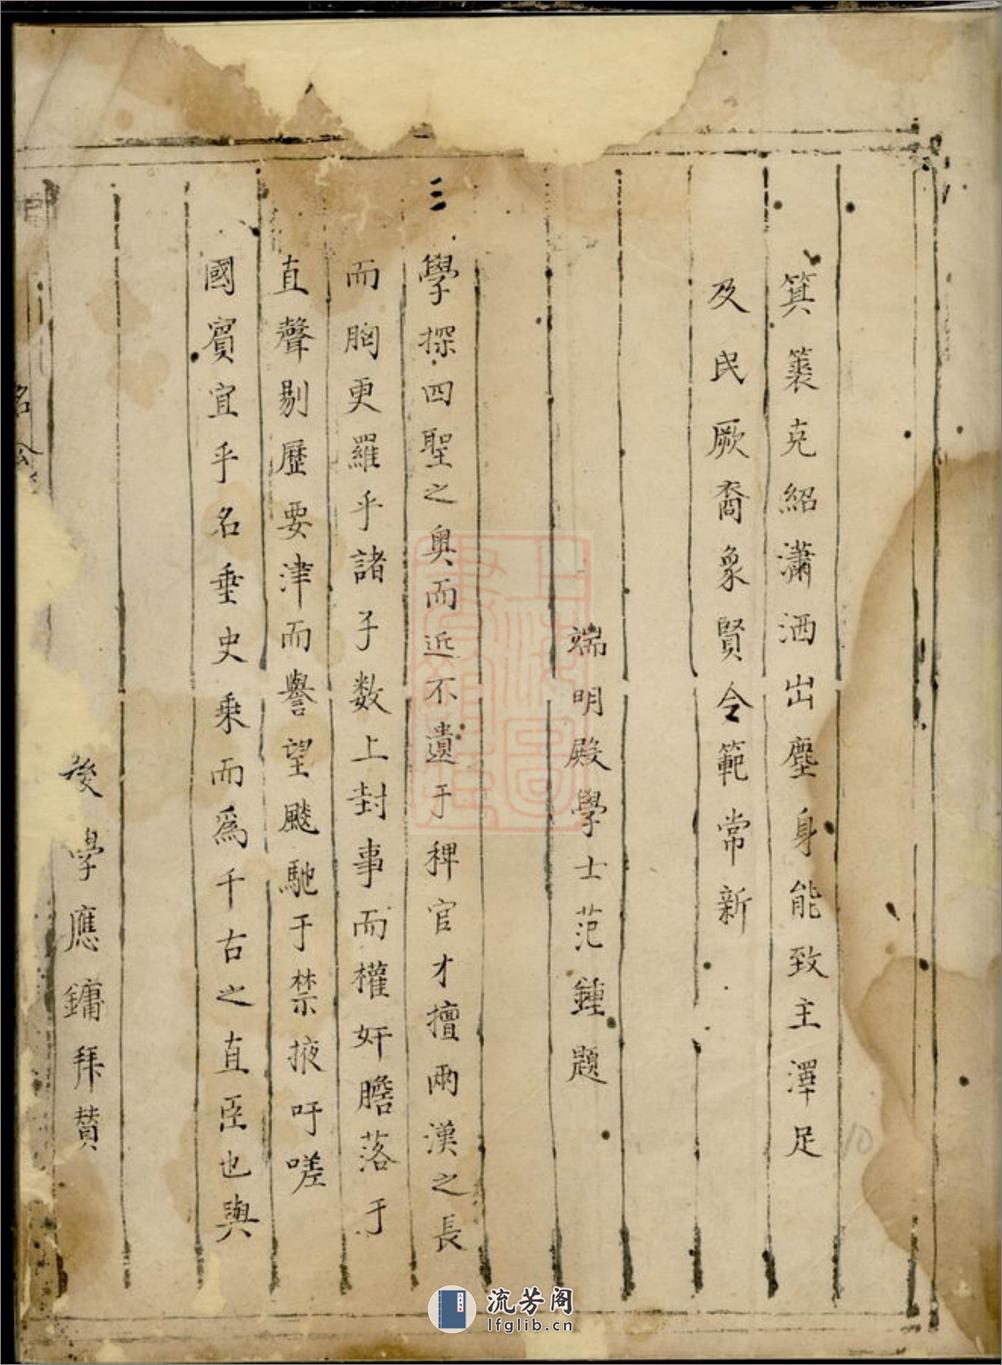 箕裘克紹瀟洒出塵身能致主澤足
及民厥裔象賢令範常新
端明殿學士范鍾題
三
學探四聖之奧而近不遺于稗官才擅兩漢之長
而胸更羅乎諸子数上封事而權奸膽落于
直聲剔歷要津而譽望飈馳于禁掖吁嗟
國賓宜乎名垂史乘而爲千古之直臣也與
後學應鏞拜賛
名公
上海圖書館藏
流芳阁
lfglib.cn
10